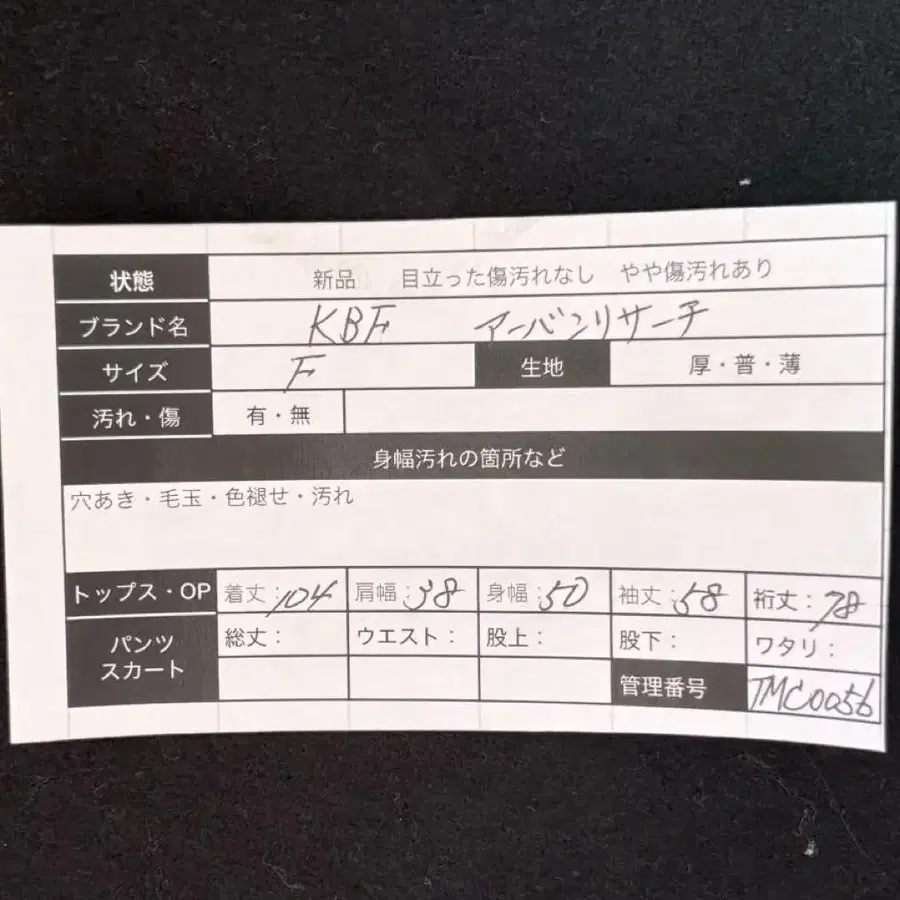 状態 新品 目立った傷汚れなし やや傷汚れあり
ブランド名 KBF アーバンリサーチ
サイズ F 生地 厚・普・薄
汚れ・傷 有・無
身幅汚れの箇所など
穴あき・毛玉・色褪せ・汚れ
トップス・OP 着丈:104 肩幅:38 身幅:50 袖丈:58 裄丈:78
パンツ スカート 総丈: ウエスト: 股上: 股下: ワタリ:
管理番号 TMC0056